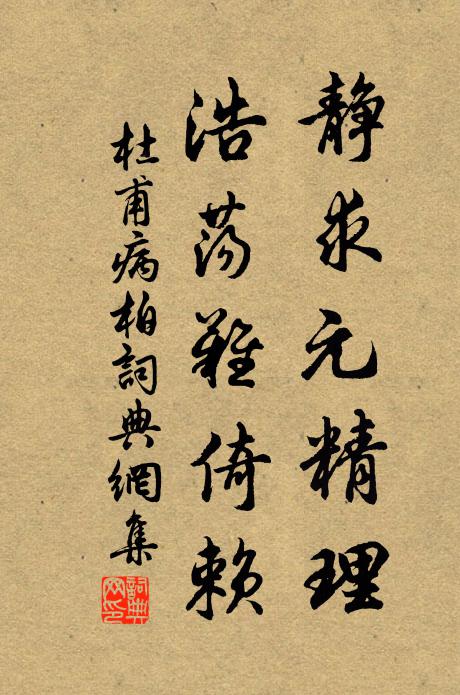 静求元精理
浩荡難倚赖
杜甫病柏詞典網集
詞典网印